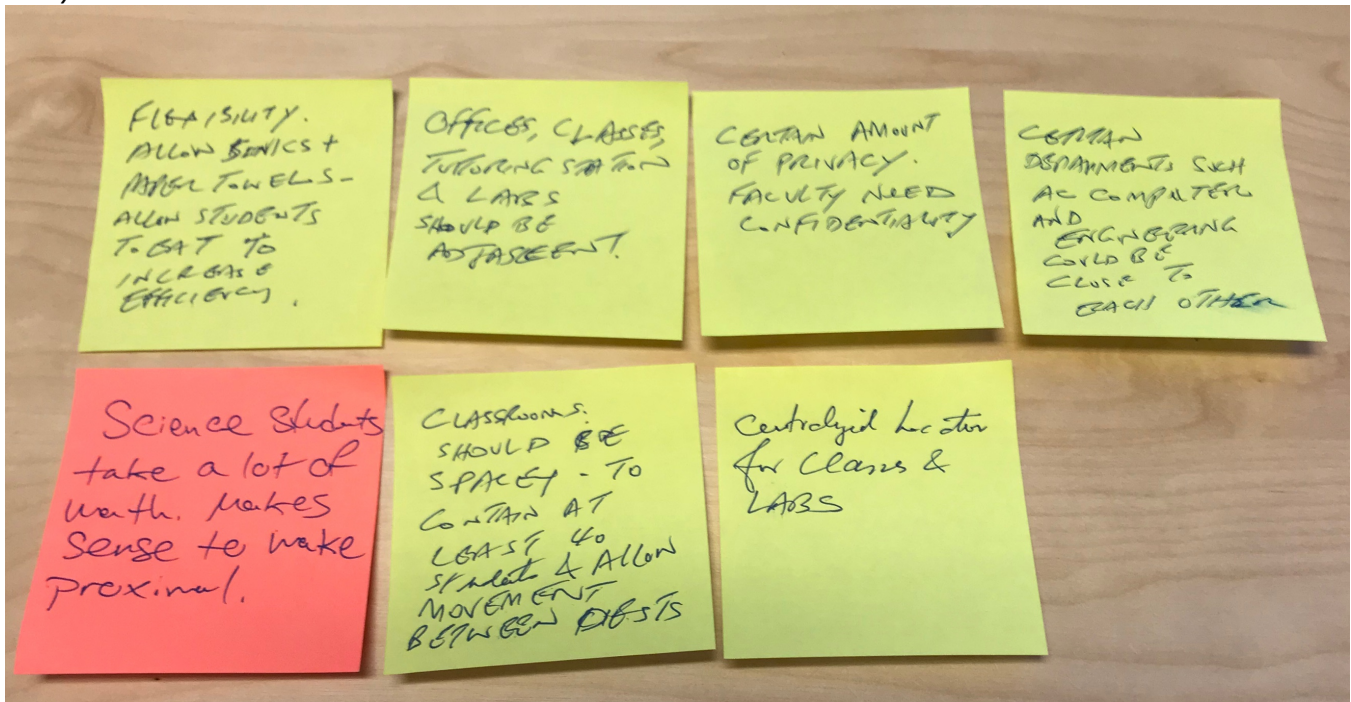 FLEXIBILITY.
ALLOW +
PAPER TOWELS -
ALLOW STUDENTS
TO EAT TO
INCREASE
EFFICIENCY.
OFFICES, CLASSES,
TUTORING STATION
& LABS
SHOULD BE
ADJASCEENT.
CERTAN AMOUNT
OF PRIVACY.
FACULTY NEED
CONFIDENTIALITY
CERTAN
DEPARMENTS SUCH
AC COMPUTER
AND
ENGINEERING
COULD BE
CLOSE TO
EACH OTHER
Science Students
take a lot of
math. Makes
sense to make
proximal.
CLASSROOMS.
SHOULD BE
SPACEY - TO
CONTAIN AT
LEAST 40
students & ALLOW
MOVEMENT
BETWEEN DESTS
Centralyid Location
for Classes &
LABS